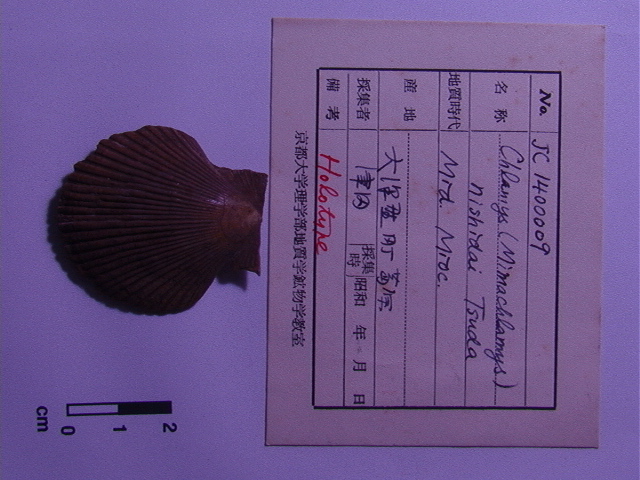 No. JC 1400009
名称 Chlamys (Mimachlamys)
nishidai Tsuda
地質時代 Mid. Mioc.
産地
採集者 津田 採集時 昭和 年 月 日
備考 Holotype
京都大学理学部地質学鉱物学教室
0 1 2
cm